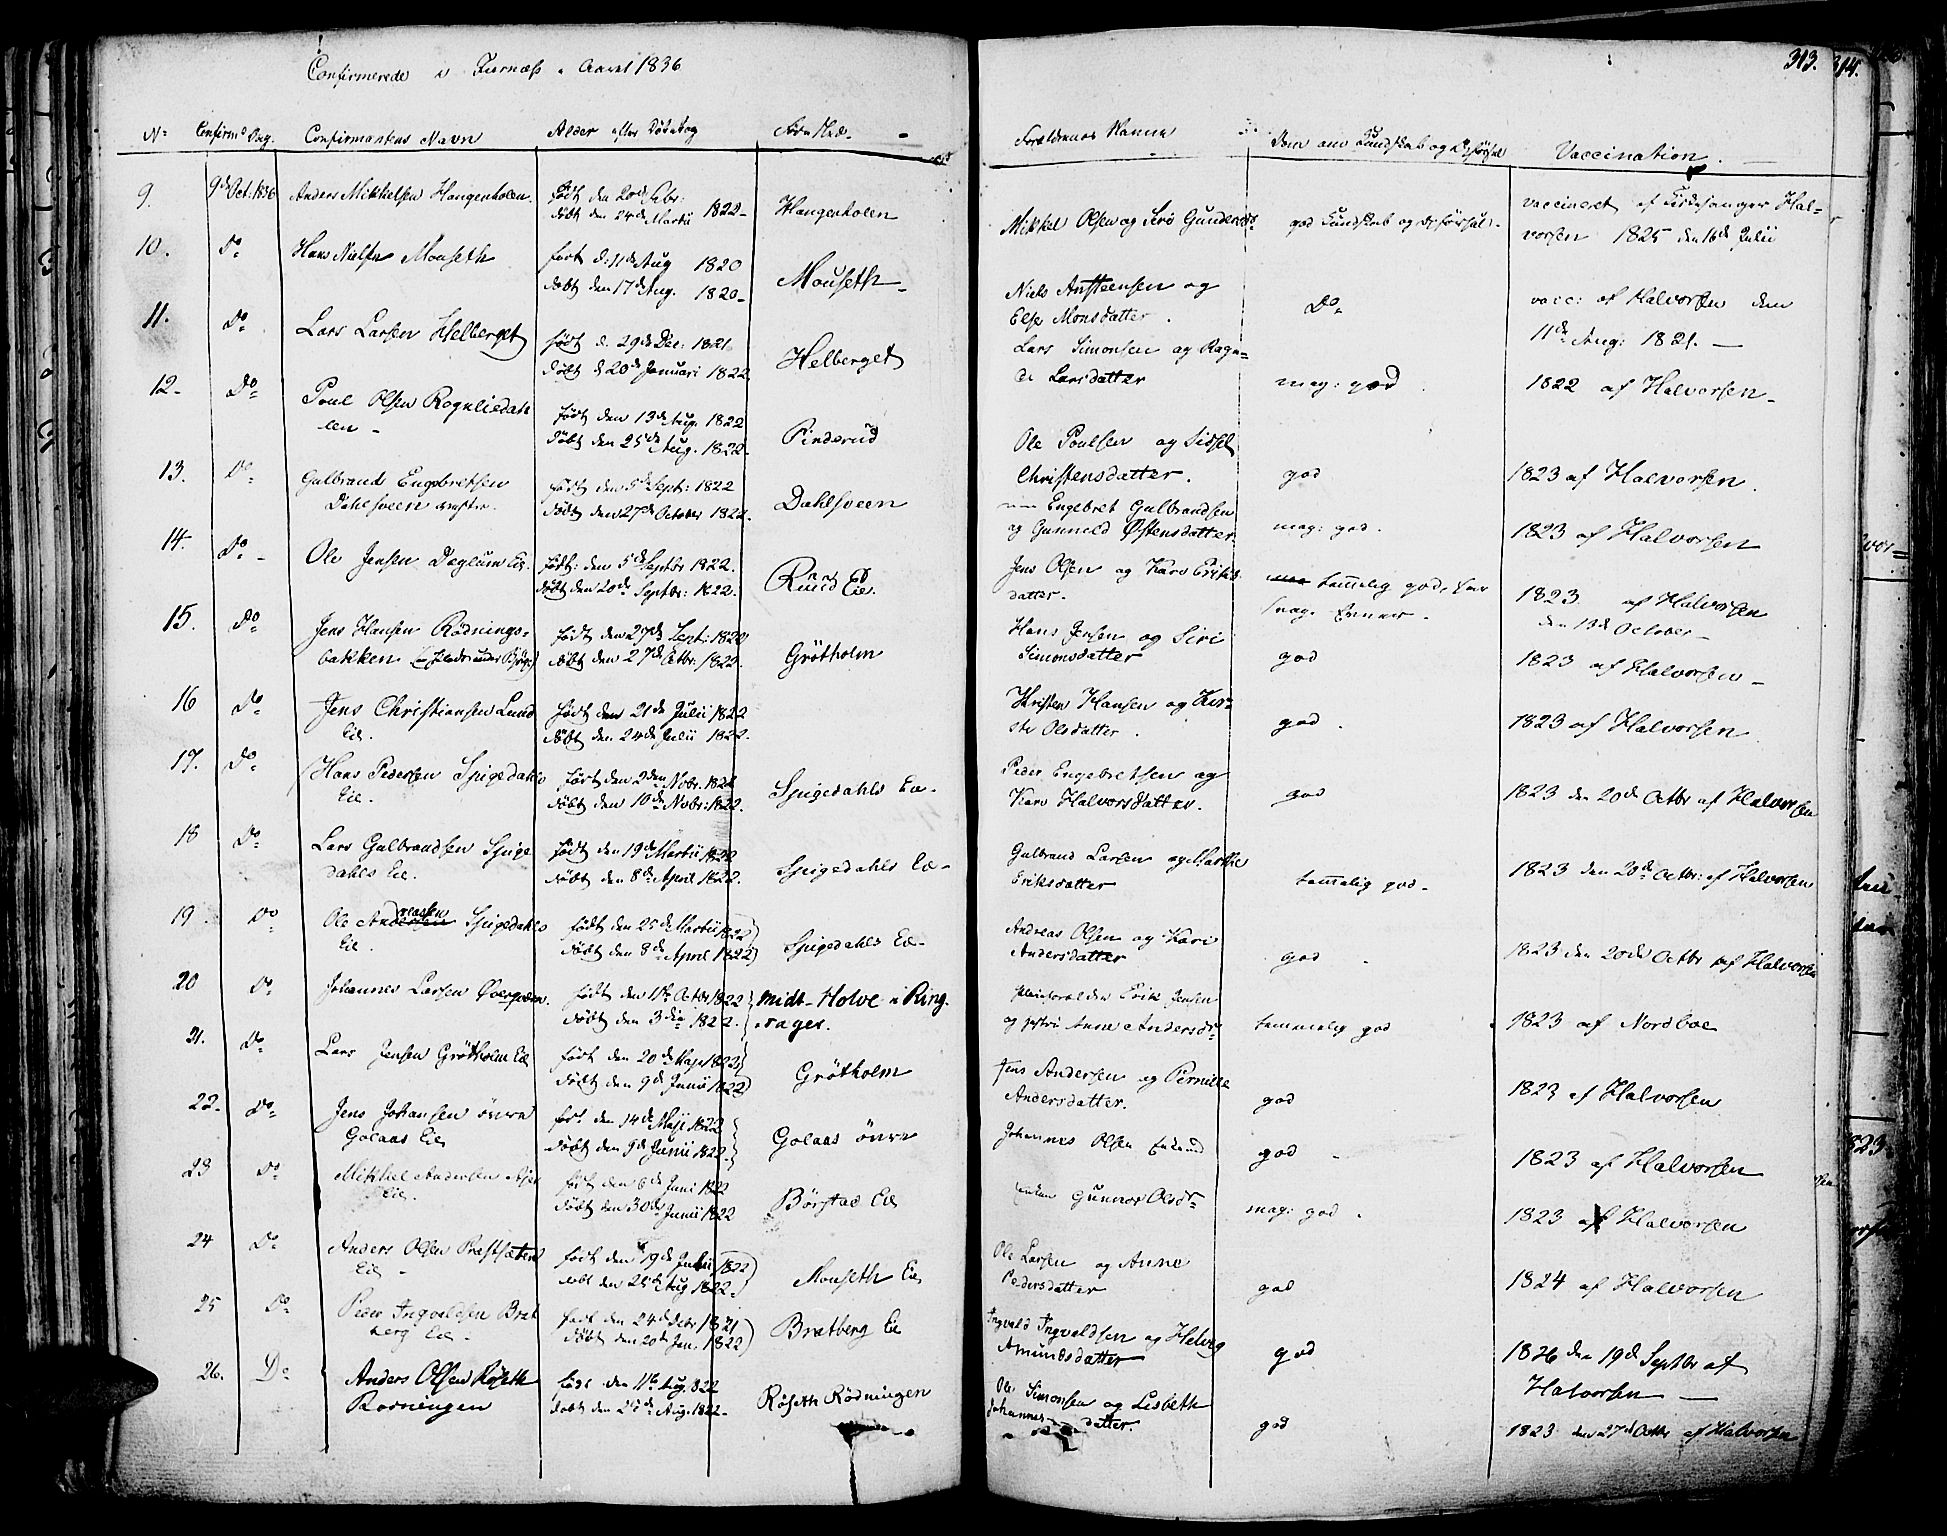 Confirmerede i Furnæss Aaret 1836
313.
314.
No Confirmd Dag. Confirmantens Navn Alder eller Døbedag Forældrenes Navne Dom om Kundskab og Opførsel Vaccination.
9. 9de Oct. 1836 Anders Mikkelsen Haugenholen. født den 20de Febr: Haugenholen Mikkel Olsen og Siri Gundersdr god Kundskab og Opførsel. vaccineret af Kirkesanger Hal-
døbt den 24de Martii 1822 vorsen 1825 den 16de Julii
10. Do Hans Nielsen Mouseth født d: 11de Aug 1820 Mouseth Niels Ansteensen og Do vacc: af Halvorsen den
døbt den 17de Aug. 1820 Else Monsdatter. 11te Aug: 1821.
11. Do Lars Larsen Helberget født d. 29de Dec: 1821 Helberget Lars Simonsen og Ragn= mag: god 1822 af Halvorsen
døbt d 20de Januari 1822. Larsdatter
12. Do Poul Olsen Rognliedah født den 13de Aug. 1822 Pinderud Ole Poulsen og Sidsel god 1823 af Halvorsen.
len døbt den 25de Aug. 1822. Christensdatter.
13. Do Gulbrand Engebretsen født den 5te Sept: 1822 Dahlsveen Engebret Gulbrandsen mag: god. 1823 af Halvorsen
Dahlsveen døbt den 27de October 1822. og Gunnild Østensdatter
14. Do Ole Jensen Deglum Eie. født: den 5te Septbr 1822. Ruud Eie. Jens Olsen og Kari Eriks tammelig god, har 1823 af Halvorsen
døbt den 20de Septbr: 1822. datter. svag. Evner den 13de October
15. Do Jens Hansen Rødnings= født den 27de Sept: 1822 Grötholm Hans Jensen og Siri god 1823 af Halvorsen
bakken døbt den 27de Octbr. 1822. Simonsdatter
16 Do Jens Christiansen Lund født den 21de Julii 1822 Christen Hansen og Kir= god. 1823 af Halvorsen
Eie. døbt den 24de Julii 1822. sti Olsdatter.
17. Do Hans Pedersen Spigedahls født den 2den Nobr. 1822 Spigedahls Eie. Peder Engebretsen og god 1823 den 20de Octbr af Halvorsen
Eie. døbt den 10de Nobr: 1822. Kari Halvorsdatter.
18 Do Lars Gulbrandsen Spige født den 19de Martii 1822 Spigedahls Eie Gulbrand Larsen og Marthe tammelig god. 1823 den 20de Octbr: af Halvorsen
dahls Eie. døbt den 8de April 1822. Eriksdatter
19. Do Ole Andreasen Spigedahls født den 25de Martii 1822 Spigedahls Eie Andreas Olsen og Kari god 1823 den 20de Octbr af Halvorsen
Eie. døbt den 8de April 1822 Andersdatter
20 Do Johannes Larsen født den 11te Octbr 1822 Midt-Holve i Ring- Pleieforælder Erik Jensen tammelig god 1823 af Nordboe
døbt den 3die 1822. sages. og Anne Andersdr
21. Do Lars Jensen Grötholm Eie født den 20de Maji 1822 Grötholm Jens Andersen og Pernille god 1823 af Halvorsen
døbt den 9de Junii 1822 Andersdatter.
22. Do Jens Johansen övre født den 14de Maji 1822 Golaas övre Johannes Olsen god 1823 af Halvorsen
Golaas Eie døbt den 9de Junii 1822.
23 Do Mikkel Andersen født den 6de Juni 1822 Börstad Eie Gunnor Olsdr mag: god. 1823 af Halvorsen
Eie. døbt den 30de Junii 1822
24 Do Anders Olsen Præstsæteren født den 19de Julii 1822 Mouseth Eie Ole Larsen og Anne god 1824 af Halvorsen
Eie døbt den 25de Aug 1822. Pedersdatter
25 Do Peder Ingvaldsen Brat født den 24de 1821 Bratberg Eie Ingvald Ingvaldsen og Helvig god 1826 den 19de Septbr af
berg Eie døbt den 20de Jan. 1822 Amundsdatter Halvorsen
26. Do Anders Olsen Röseth født den 11te Aug. 1822 Röseth Rödningen Ole Simonsen og Lisbeth god 1823 den 27de Octbr af Halvorsen
Rödningen døbt den Aug. 1822. Johannesdatter.